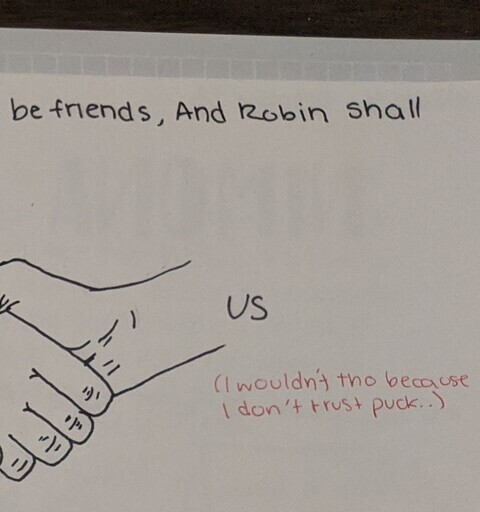 be friends, And Robin shall
US
(I wouldn't tho because
I don't trust puck..)